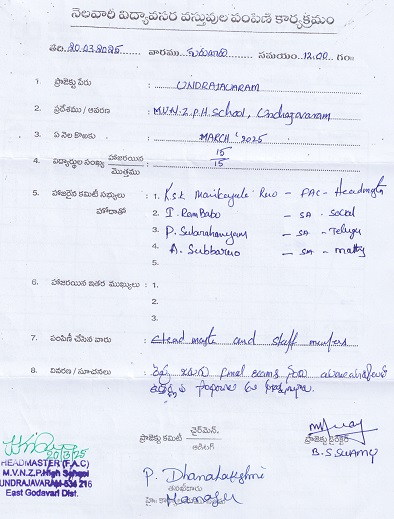 నెలవారీ విద్యావసర వస్తువుల పంపిణీ కార్యక్రమం
తేది. 20.03.2025 వారము. గురువారం సమయం. 12.00 గం॥
1. ప్రాజెక్టు పేరు : UNDRAJAVARAM
2. ప్రదేశము / ఆవరణ : M.V.N.Z.P.H School, Undrajavaram
3. ఏ నెల కొరకు : MARCH' 2025
4. విద్యార్థుల సంఖ్య హాజరయిన / మొత్తము : 15 / 15
5. హాజరైన కమిటీ సభ్యులు : 1. K.S.S. Manikeyala Rao - FAC-Headmaster
హోదాతో 2. I. RamBabo - SA - Social
3. P. Subrahmanyam - SA - Telugu
4. A. Subbarao - SA - Maths
5.
6. హాజరయిన ఇతర ముఖ్యులు : 1.
2.
3.
7. పంపిణీ చేసిన వారు : Head master and staff members
8. వివరణ / సూచనలు : final exams
చైర్‌మెన్.
ప్రాజెక్టు కమిటీ ఆడిటర్
ప్రాజెక్టు డైరెక్టర్
B.S. SWAMY
20/3/25
HEADMASTER (F.A.C)
M.V.N.Z.P.High School
UNDRAJAVARAM-534 216
East Godavari Dist.
P. Dhanalakshmi
Manager